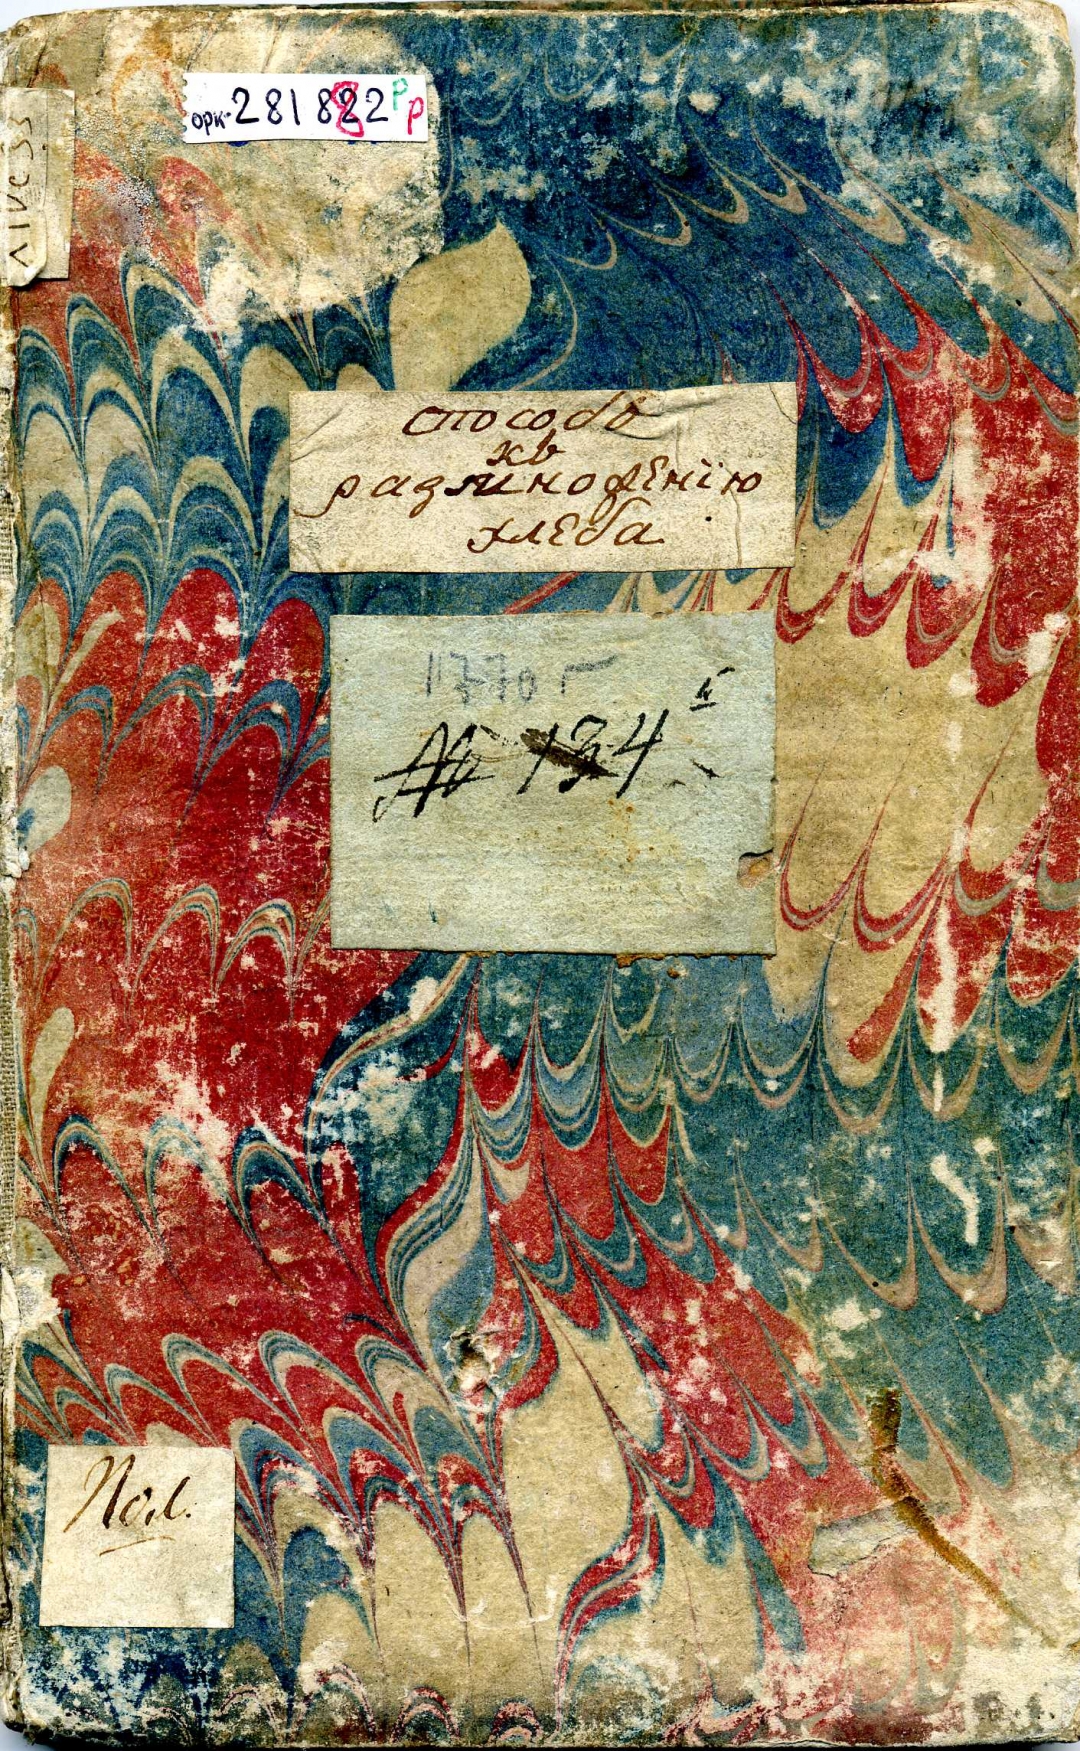 орк. 281882 р р
способъ
къ
размноженїю
хлеба.
1770 г
№ 134
Пол.